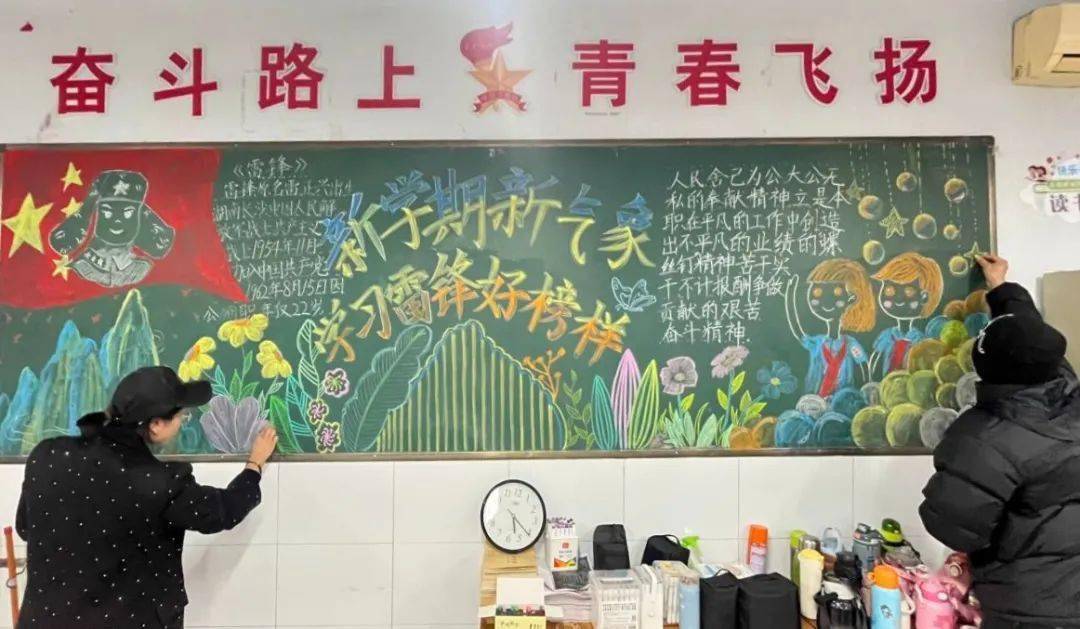 奋斗路上
青春飞扬
《雷锋》
雷锋原名雷正兴出生
湖南长沙中国人民解
放军战士共产主义
战士1954年11月
加入中国共产党
1962年8月15日因
公殉职年仅22岁
新学期新气象
学习雷锋好榜样
人民舍己为公大公无
私的奉献精神立足本
职在平凡的工作中创造
出不平凡的业绩的螺
丝钉精神苦干实
干不计报酬争做
贡献的艰苦
奋斗精神.
快乐
读书